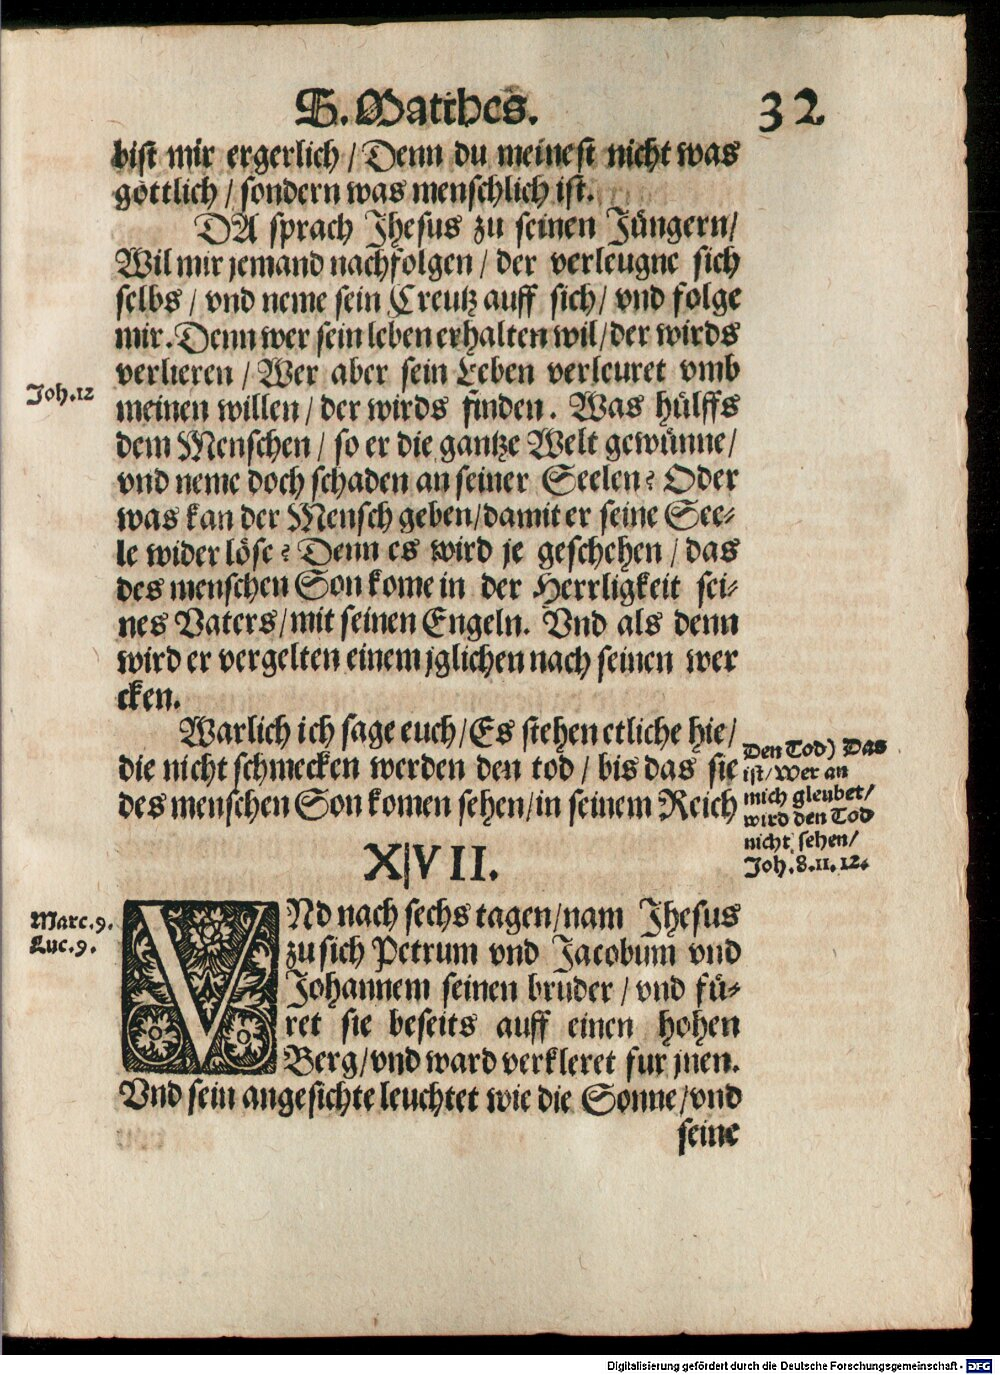 S. Matthes. 32
bist mir ergerlich / Denn du meinest nicht was
göttlich / sondern was menschlich ist.
DA sprach Jhesus zu seinen Jüngern /
Wil mir jemand nachfolgen / der verleugne sich
selbs / vnd neme sein Creutz auff sich / vnd folge
mir. Denn wer sein leben erhalten wil / der wirds
verlieren / Wer aber sein Leben verleuret vmb
Joh. 12
meinen willen / der wirds finden. Was hülffs
dem Menschen / so er die gantze Welt gewünne /
vnd neme doch schaden an seiner Seelen? Oder
was kan der Mensch geben / damit er seine See-
le wider löse? Denn es wird je geschehen / das
des menschen Son kome in der Herrligkeit sei-
nes Vaters / mit seinen Engeln. Vnd als denn
wird er vergelten einem jglichen nach seinen wer
cken.
Warlich ich sage euch / Es stehen etliche hie /
die nicht schmecken werden den tod / bis das sie
des menschen Son komen sehen / in seinem Reich
Den Tod) Das
ist / Wer an
mich gleubet /
wird den Tod
nicht sehen /
Joh. 8. 11. 12.
XVII.
Marc. 9.
Luc. 9.
VNd nach sechs tagen / nam Jhesus
zu sich Petrum vnd Jacobum vnd
Johannem seinen bruder / vnd fü-
ret sie beseits auff einen hohen
Berg / vnd ward verkleret fur jnen.
Vnd sein angesichte leuchtet wie die Sonne / vnd
seine
Digitalisierung gefördert durch die Deutsche Forschungsgemeinschaft - DFG